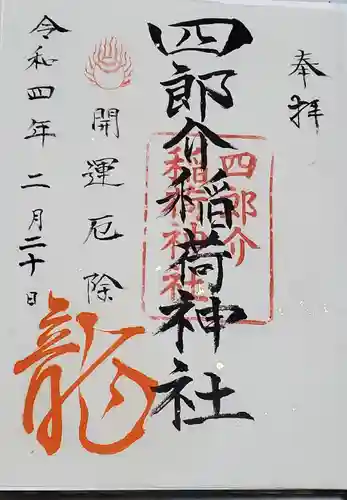 奉拝
四郎介稲荷神社
四郎介
稲荷神社
開運厄除
龍
令和四年二月二十日